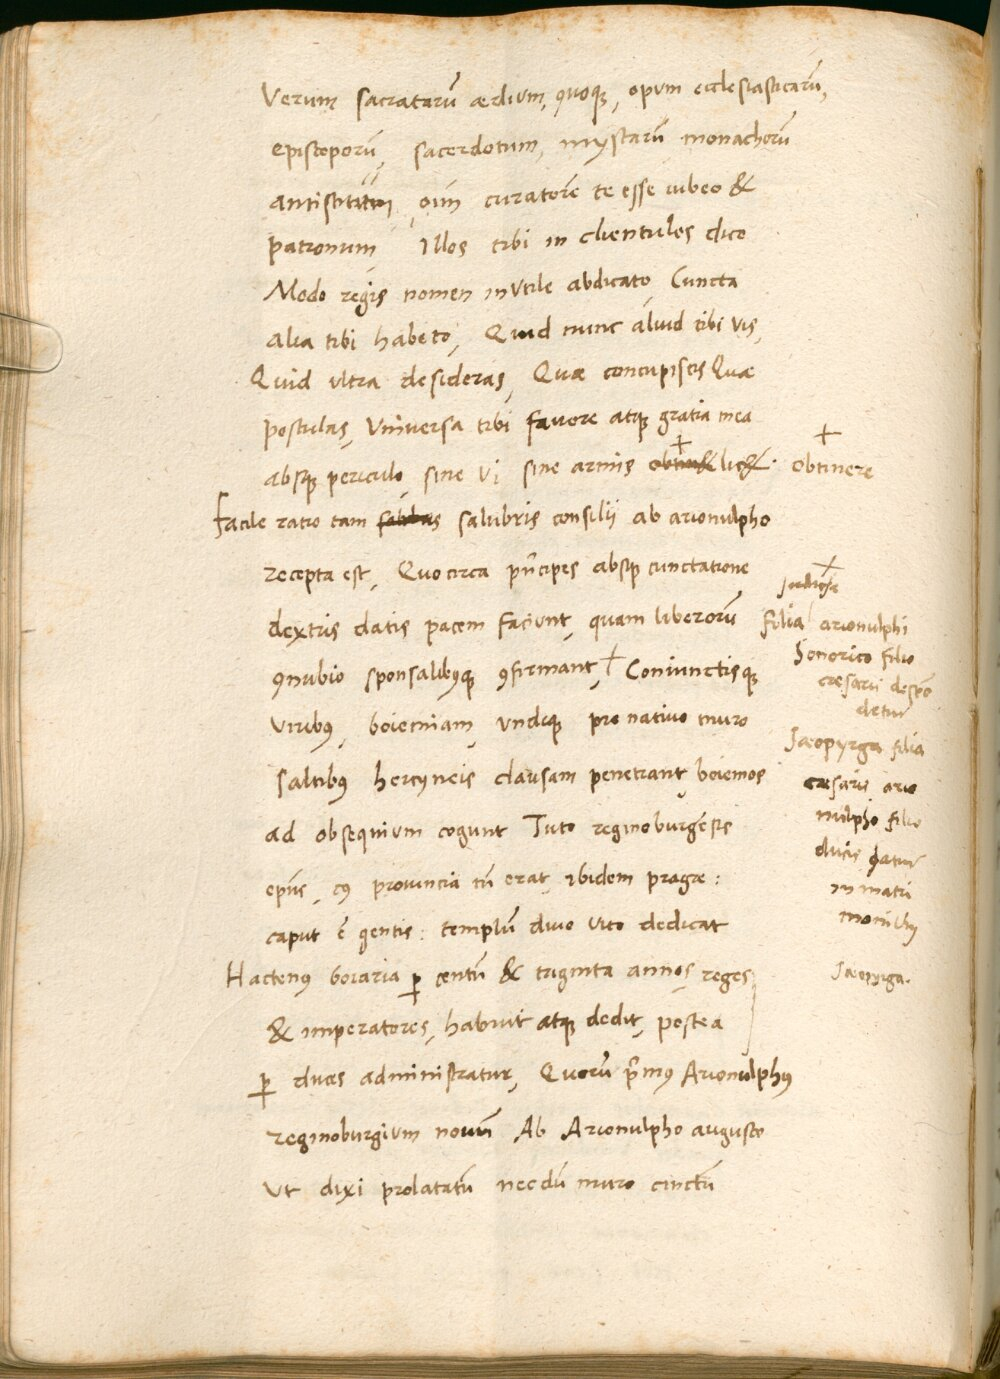 Verum sacratarū ædium, quoq, opum ecclesiasticarū,
episcoporū, sacerdotum, mystarū monachorū
antistitum, oīm curatorē te esse iubeo &
patronum Illos tibi in clientules dico
Modo regis nomen inutile abdicato, Cuncta
alia tibi habeto, Quid nunc aliud tibi vis,
Quid ultra desideras, Quæ concupiscis Quæ
postulas, Universa tibi favore atq gratia mea
absq periculo, sine vi sine armis licet. + obtinere
Facile ratio tam salubris consilii ab arionulpho
recepta est, Quocirca pn̄cipes absq cunctatione
dextris datis pacem faciunt, quam liberorū
9nubio sponsalib9q 9firmant, + Coniunctisq
viribus, boiemiam, undiq pro nativo muro
saltib9 hercyneis clausam penetrant, boiemos
ad obsequium cogunt Tuto reginoburgēsis
ep̄us, c9 provincia tū erat, ibidem pragæ:
caput ē gentis: templū divo Vito dedicat
Hacten9 boiaria p centū & triginta annos reges
& imperatores, habuit atq dedit, postea
p duces administratur, Quorū p̄m9 Arionulph9
reginoburgium novū Ab Arionulpho augusto
Ut dixi prolatatū necdū muro cinctū
+
filia arionulphi
Henorico filio
cæsarii despō
detur
Hæopyrga filia
cæsaris ario
nulpho filio
ducis datur
in matri
monium
Hæopyrga.